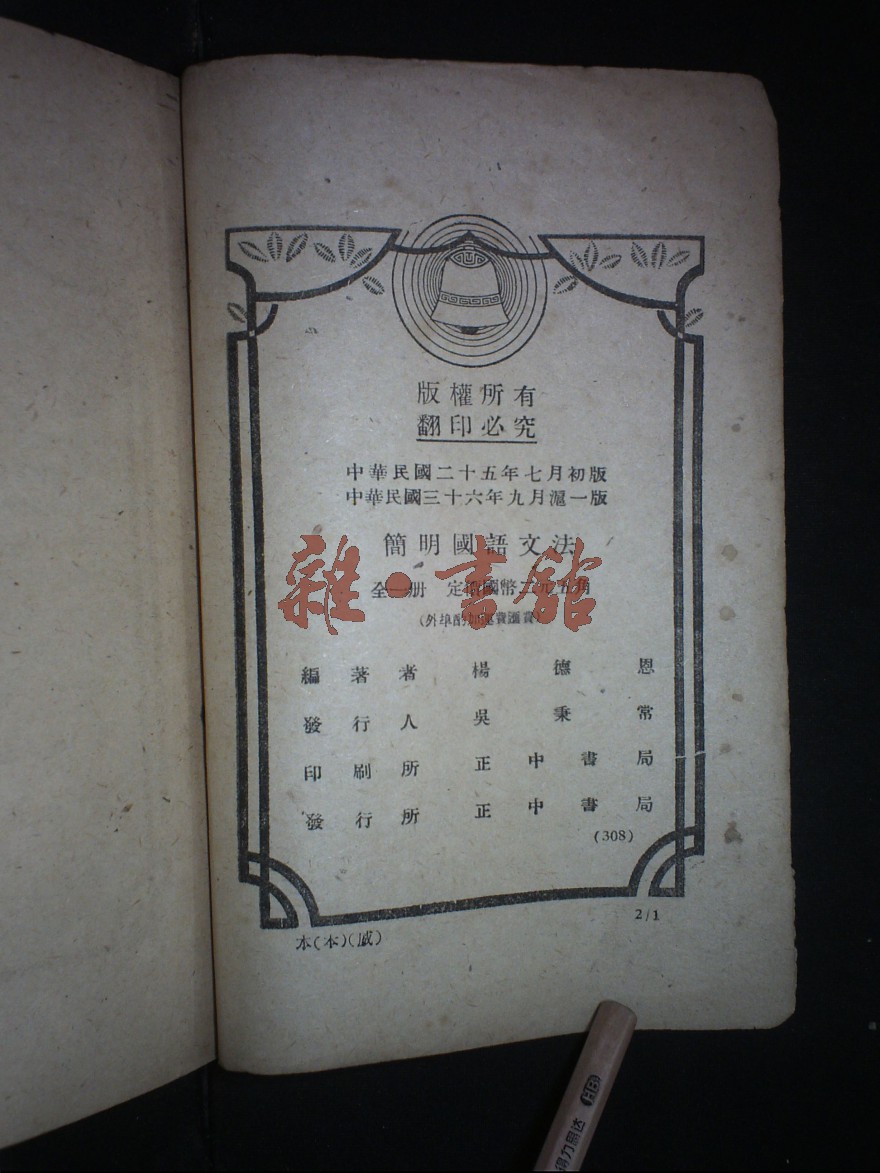 版權所有
翻印必究
中華民國二十五年七月初版
中華民國三十六年九月滬一版
簡明國語文法
雜·書館
全一册 定價國幣二元五角
(外埠酌加運費匯費)
編著者 楊德恩
發行人 吳秉常
印刷所 正中書局
發行所 正中書局
(308)
2/1
本(本)(威)
得力思达 HB